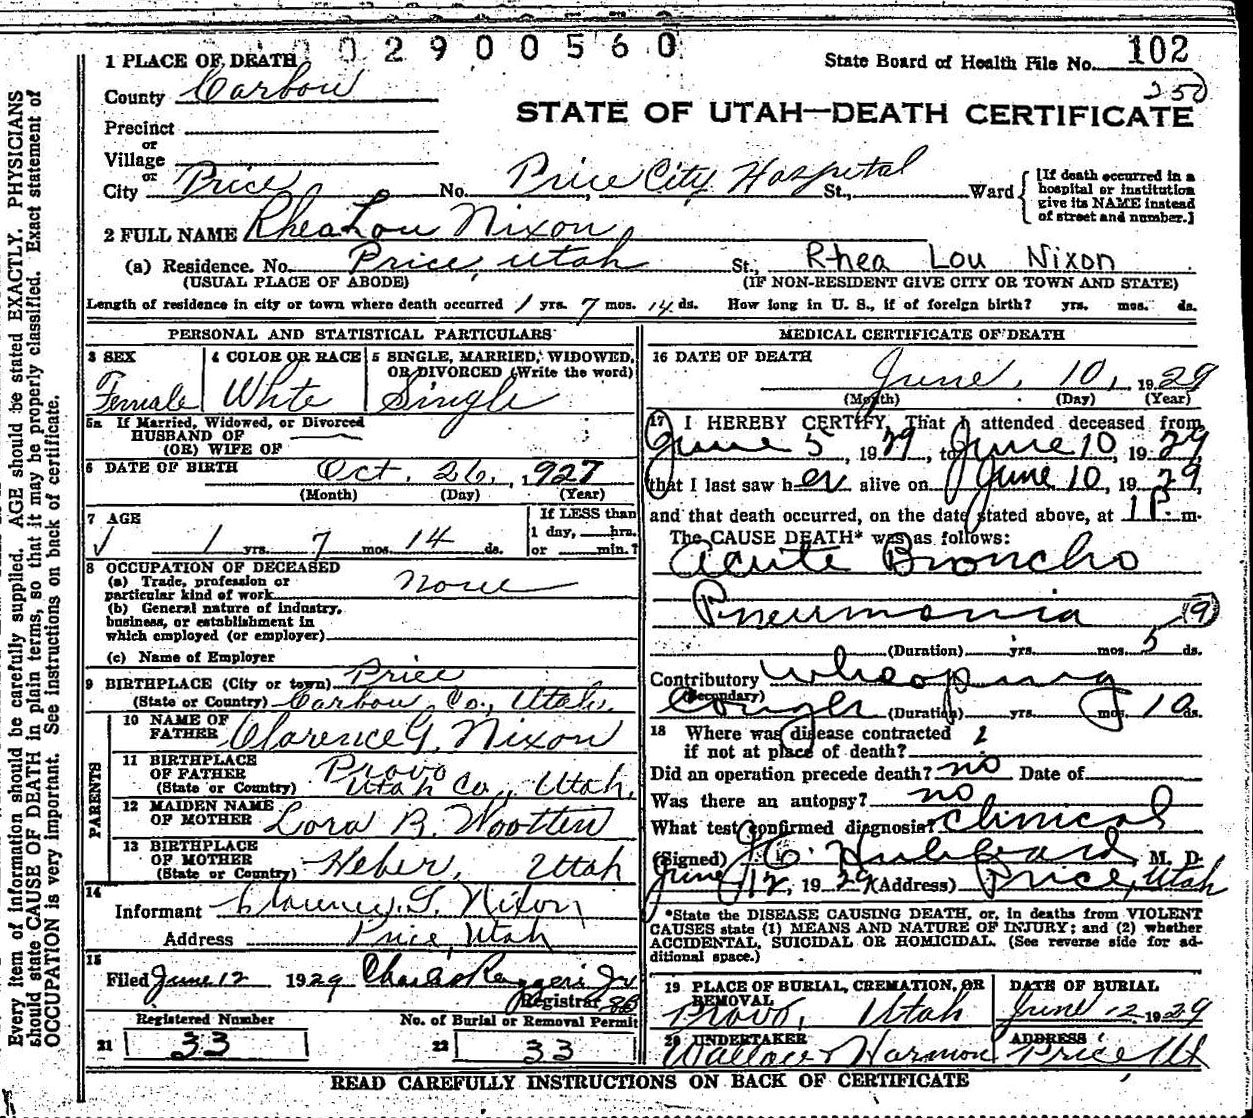 0 0 2 9 0 0 5 6 0
1 PLACE OF DEATH
State Board of Health File No. 102
250
County Carbon
STATE OF UTAH—DEATH CERTIFICATE
Precinct
or
Village
or
City Price No. Price City Hospital St., Ward
[If death occurred in a hospital or institution give its NAME instead of street and number.]
2 FULL NAME Rhea Lou Nixon
(a) Residence. No. Price, Utah St., Rhea Lou Nixon
(USUAL PLACE OF ABODE) (IF NON-RESIDENT GIVE CITY OR TOWN AND STATE)
Length of residence in city or town where death occurred 1 yrs. 7 mos. 14 ds. How long in U. S., if of foreign birth? yrs. mos. ds.
PERSONAL AND STATISTICAL PARTICULARS
3 SEX
Female
4 COLOR OR RACE
White
5 SINGLE, MARRIED, WIDOWED, OR DIVORCED (Write the word)
Single
5a If Married, Widowed, or Divorced
HUSBAND OF
(OR) WIFE OF
6 DATE OF BIRTH Oct. 26, 1927
(Month) (Day) (Year)
7 AGE
1 yrs. 7 mos. 14 ds.
If LESS than
1 day, hrs.
or min.?
8 OCCUPATION OF DECEASED
(a) Trade, profession or
particular kind of work None
(b) General nature of industry,
business, or establishment in
which employed (or employer)
(c) Name of Employer
9 BIRTHPLACE (City or town) Price
(State or Country) Carbon Co., Utah.
PARENTS
10 NAME OF
FATHER Clarence G. Nixon
11 BIRTHPLACE
OF FATHER Provo
(State or Country) Utah Co., Utah.
12 MAIDEN NAME
OF MOTHER Lora B. Wootten
13 BIRTHPLACE
OF MOTHER
(State or Country) Heber, Utah
14
Informant Clarence G. Nixon
Address Price, Utah
15
Filed June 12 1929 Charles Ruggeri Jr
Registrar
Registered Number
21 33
No. of Burial or Removal Permit
22 33
MEDICAL CERTIFICATE OF DEATH
16 DATE OF DEATH
June, 10, 1929
(Month) (Day) (Year)
17 I HEREBY CERTIFY, That I attended deceased from
June 5, 1929, to June 10, 1929
that I last saw her alive on June 10, 1929,
and that death occurred, on the date stated above, at 1 P. m.
The CAUSE DEATH* was as follows:
Acute Broncho
Pneumonia (9)
(Duration) yrs. mos. 5 ds.
Contributory Whooping
(Secondary)
Cough (Duration) yrs. mos. 10 ds.
18 Where was disease contracted
if not at place of death? ?
Did an operation precede death? no Date of
Was there an autopsy? no
What test confirmed diagnosis? Clinical
(Signed) Hubbard M. D.
June 12, 1929 (Address) Price, Utah
*State the DISEASE CAUSING DEATH, or, in deaths from VIOLENT
CAUSES state (1) MEANS AND NATURE OF INJURY; and (2) whether
ACCIDENTAL, SUICIDAL OR HOMICIDAL. (See reverse side for ad-
ditional space.)
19 PLACE OF BURIAL, CREMATION, OR
REMOVAL
Provo, Utah
DATE OF BURIAL
June 12 1929
20 UNDERTAKER
Wallace Harmon
ADDRESS
Price, Ut
READ CAREFULLY INSTRUCTIONS ON BACK OF CERTIFICATE
Every item of information should be carefully supplied. AGE should be stated EXACTLY. PHYSICIANS
should state CAUSE OF DEATH in plain terms, so that it may be properly classified. Exact statement of
OCCUPATION is very important. See instructions on back of certificate.